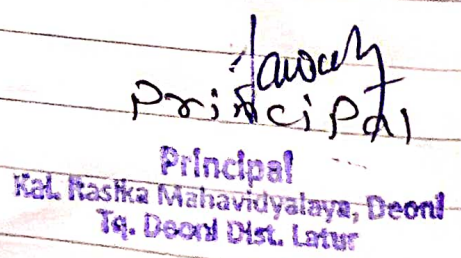 Principal
Principal
Kai. Rasika Mahavidyalaya, Deoni
Tq. Deoni Dist. Latur